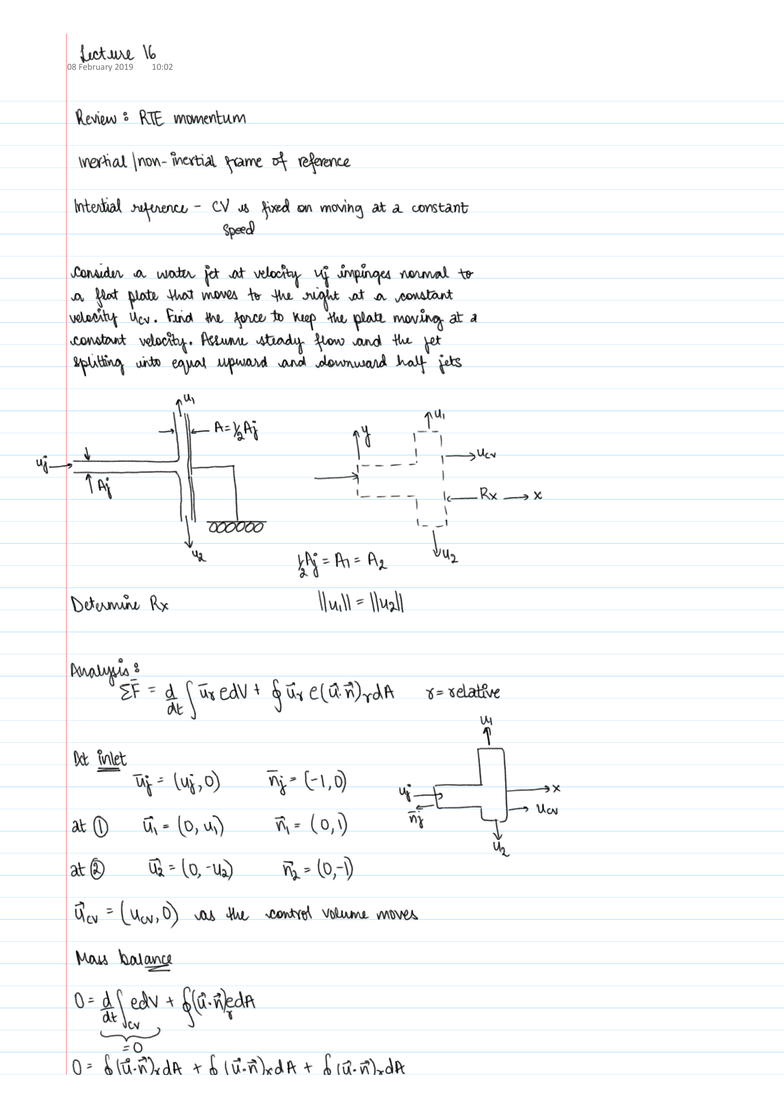 Lecture 16
08 February 2019 10:02
Review : RTE momentum
Inertial /non-inertial frame of reference
Intertial reference - CV is fixed on moving at a constant
speed
Consider a water jet at velocity uj impinges normal to
a flat plate that moves to the right at a constant
velocity ucv. Find the force to keep the plate moving at a
constant velocity. Assume steady flow and the jet
splitting into equal upward and downward half jets
u1
A=½Aj
uj
Aj
u2
u1
y
ucv
Rx → x
u2
½Aj = A1 = A2
Determine Rx ||u1|| = ||u2||
Analysis :
ΣF̄ = d/dt ∫ ūr ρdV + ∮ ūr ρ(ū·n̄)r dA r = relative
At inlet
ūj = (uj, 0) n̄j = (-1, 0)
at ① u⃗1 = (0, u1) n⃗1 = (0, 1)
at ② u⃗2 = (0, -u2) n⃗2 = (0, -1)
u1
uj
n̄j
x
ucv
u2
u⃗cv = (ucv, 0) as the control volume moves
Mass balance
0 = d/dt ∫cv ρdV + ∮(u⃗·n⃗)r ρdA
=0
0 = ∮(u⃗·n⃗)r dA + ∮(u⃗·n⃗)r dA + ∮(u⃗·n⃗)r dA